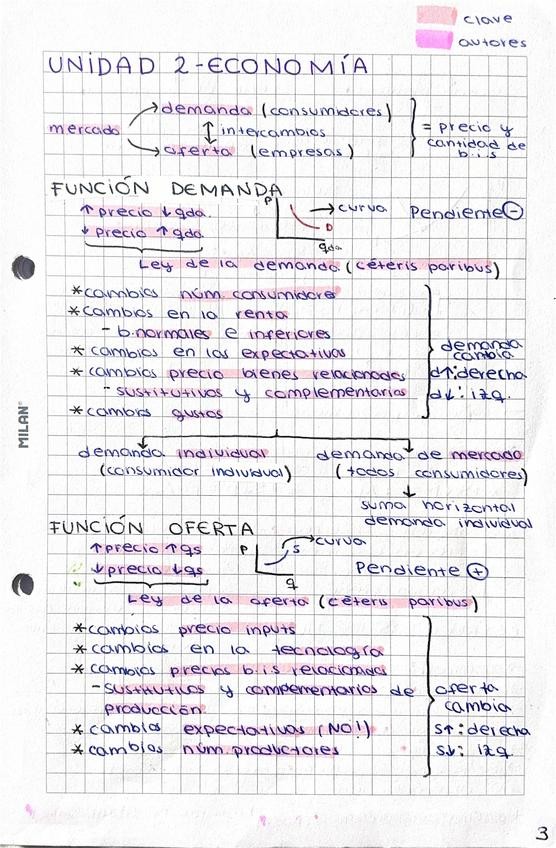 clave
autores
UNIDAD 2-ECONOMÍA
mercado
demanda (consumidores)
intercambios
oferta (empresas)
= precio y
cantidad de
b.i.s
FUNCIÓN DEMANDA
↑ precio ↓ qda.
↓ precio ↑ qda.
P
D
qda
→ curva
Pendiente ⊖
Ley de la demanda (céteris paribus)
* cambios núm. consumidore
* cambios en la renta
- b.normales e inferiores
* cambios en las expectativas
* cambios precio bienes relacionados
- sustitutivos y complementarios
* cambios gustos
demanda
cambia
d↑: derecha
d↓: izq.
demanda individual
(consumidor individual)
demanda de mercado
(todos consumidores)
suma horizontal
demanda individual
FUNCIÓN OFERTA
↑ precio ↑ qs
↓ precio ↓ qs
P
S
q
→ curva
Pendiente ⊕
Ley de la oferta (céteris paribus)
* cambios precio inputs
* cambios en la tecnología
* cambios precios b.i.s relacionados
- sustitutivos y complementarios de
producción
* cambios expectativas (NO!)
* cambios núm. productores
oferta
cambia
s↑: derecha
s↓: izq
MILAN®
3